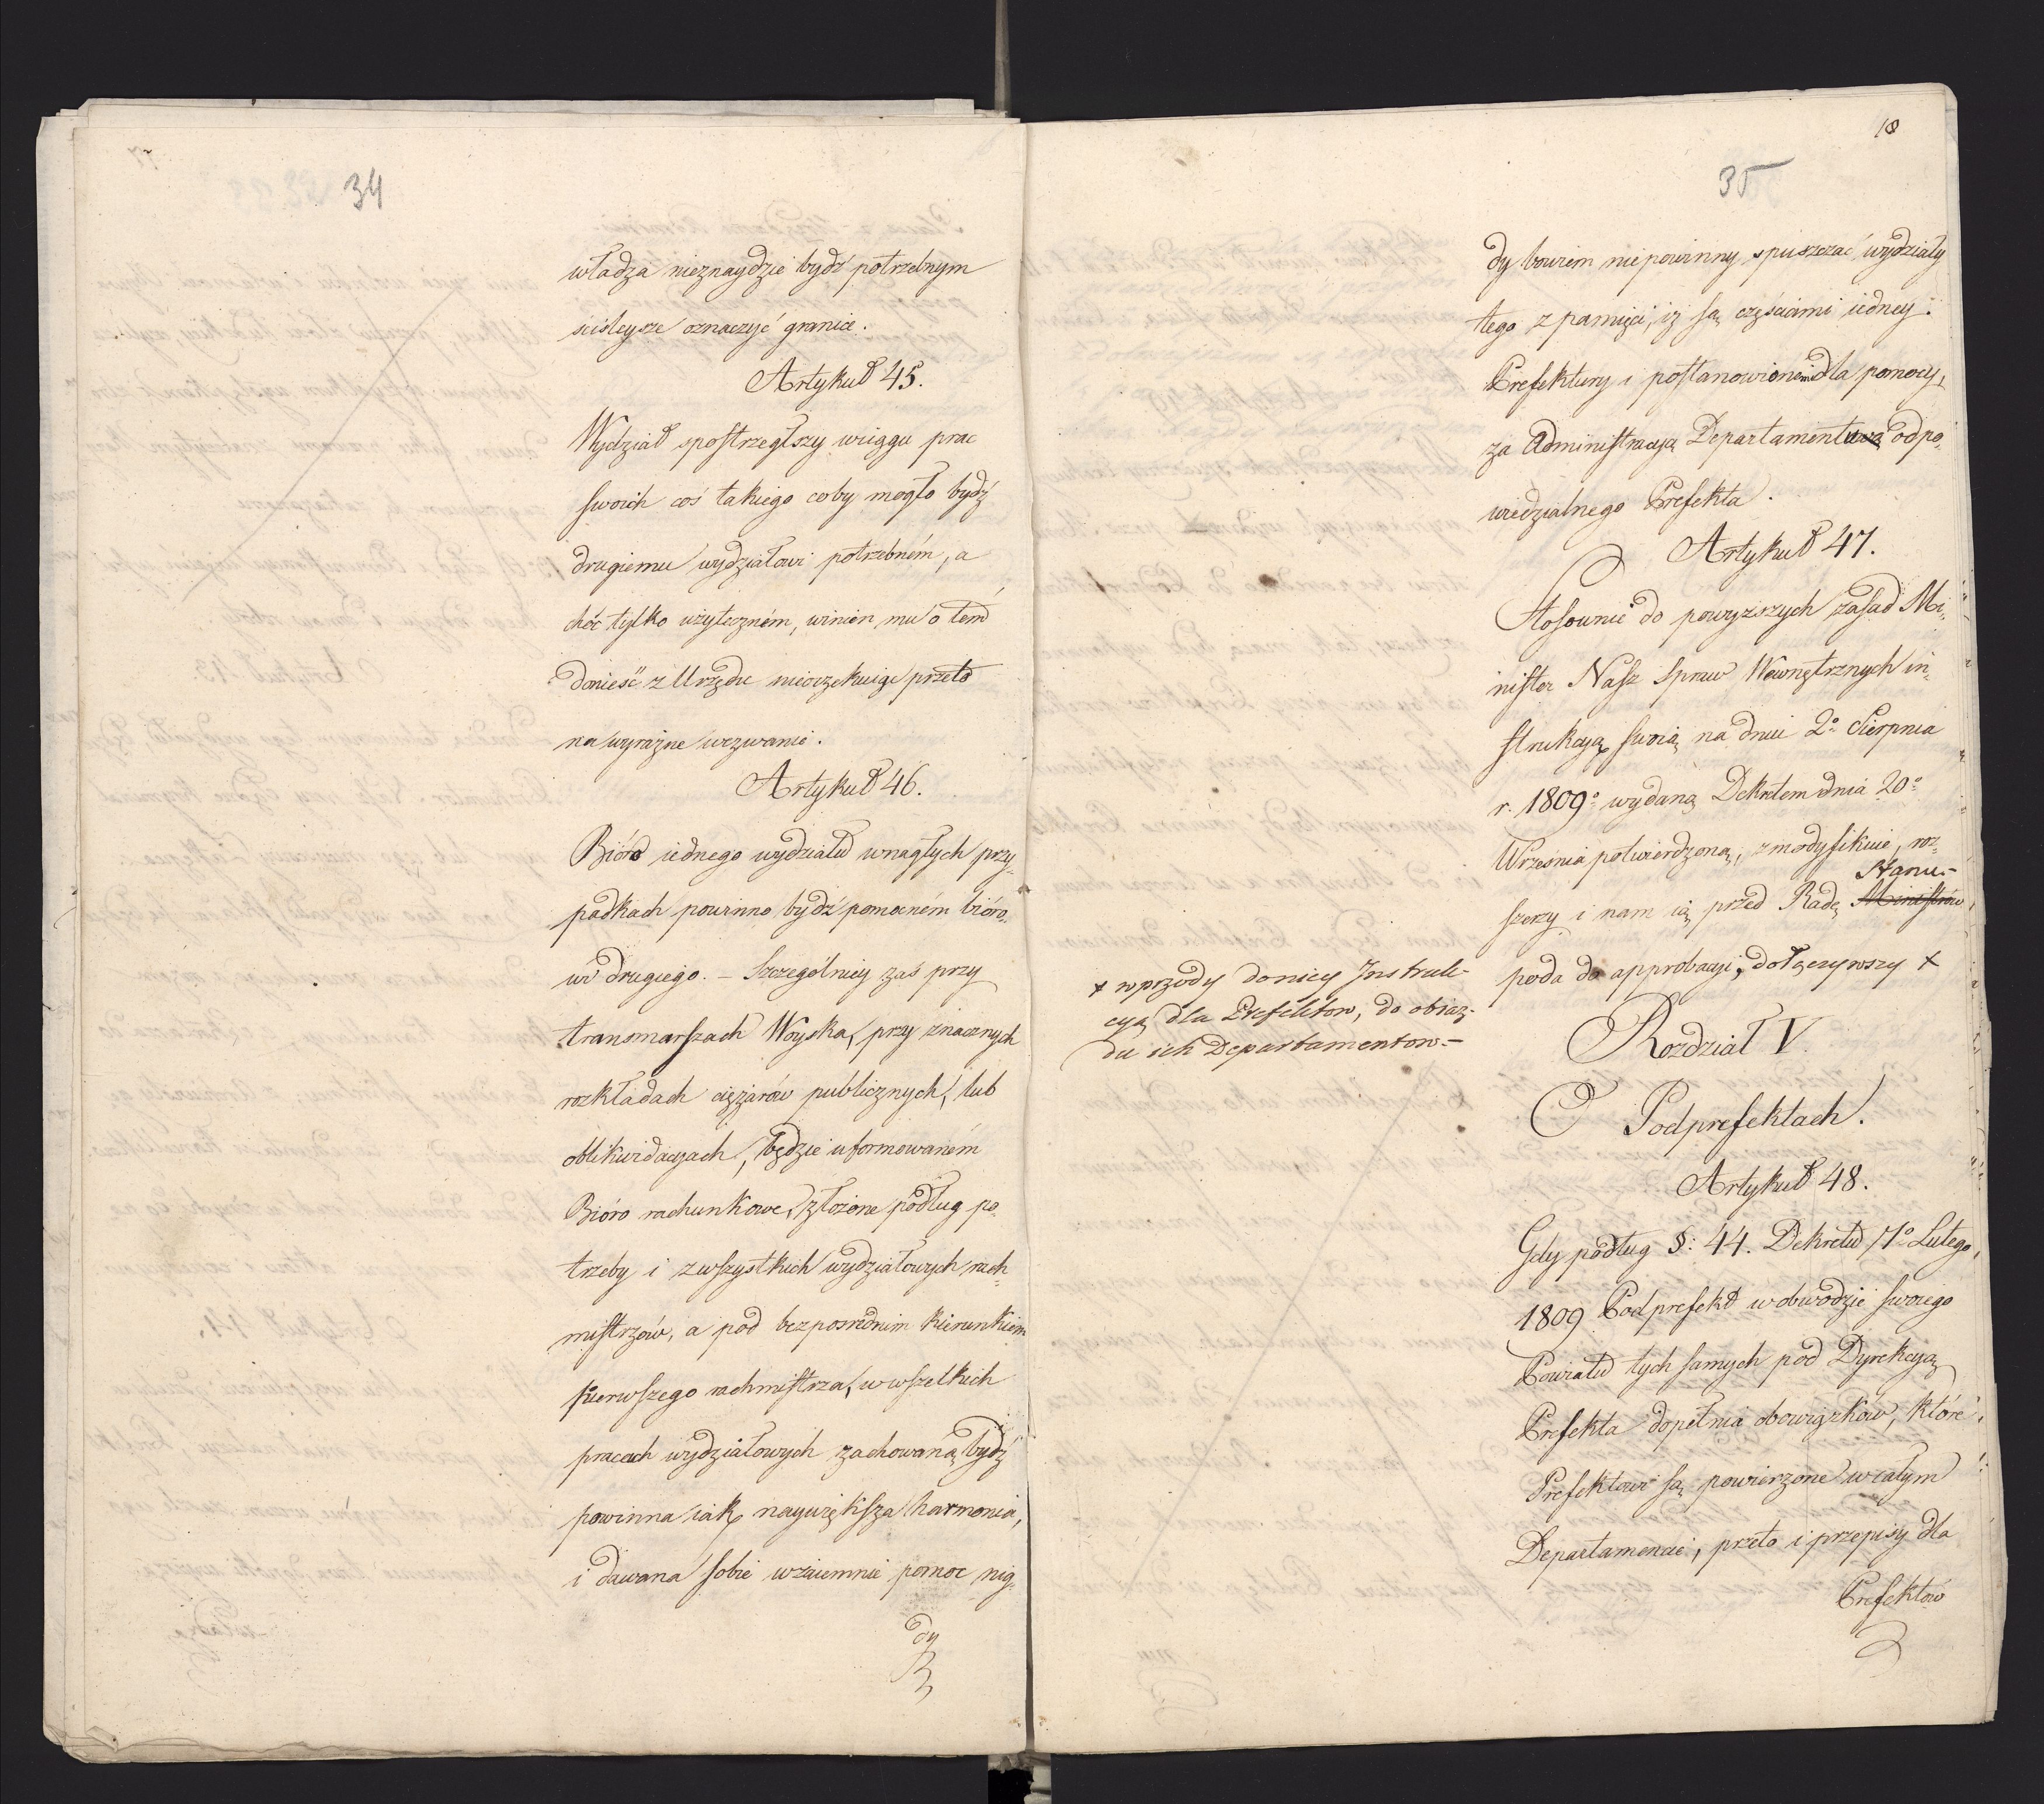 34
władza nieznaydzie bydź potrzebnym
ścisleysze oznaczyć granice.
Artykuł 45.
Wydział spostrzegłszy wciągu prac
swoich coś takiego coby mogło bydź
drugiemu wydziałowi potrzebném, a
choć tylko użyteczném, winien mu o tem
donieść z Urzędu nieoczekuiąc przeto
na wyraźne wezwanie.
Artykuł 46.
Bióro iednego wydziału wnagłych przy-
padkach powinno bydź pomocném bióro-
wi drugiego. – Szczególniey zaś przy
transmarszach Woyska, przy znacznych
rozkładach ciężarów publicznych, lub
oblikwidacyach, będzie uformowaném
Bióro rachunkowe, złożone podług po-
trzeby i zwszystkich wydziałowych rach-
mistrzów, a pod bezpośrednim kierunkiem
pierwszego rachmistrza, wwszelkich
pracach wydziałowych zachowaną bydź
powinna iak naywiększa harmonia,
i dawana sobie wzaiemnie pomoc nig-
dy
18
35
dy bowiem niepowinny spuszczać wydziały
tego z pamięci, iż są częściami iedney
Prefektury i postanowionemi dla pomocy,
za Administracyą Departamentową odpo-
wiedzialnego Prefekta.
Artykuł 47.
Stosownie do powyższych zasad Mi-
nister Nasz Spraw Wewnętrznych in-
strukcyą swoią na dniu 2o Sierpnia
r. 1809o wydaną Dekretem dnia 20o
Września potwierdzoną, zmodyfikuie, roz-
Stanu.-
szerzy i nam ią przed Radę Ministrów
poda do approbacyi, dołączywszy +
+ wprzódy do niey Instruk-
cyą dla Prefektów, do obiaz-
du ich Departamentow.-
Rozdział V.
O Podprefektach.
Artykuł 48.
Gdy podług §: 44. Dekretu 7o Lutego
1809 Podprefekt wobwodzie swoiego
Powiatu tych samych pod Dyrekcyą
Prefekta dopełnia obowiązków, które
Prefektowi są powierzone wcałym
Departamencie, przeto i przepisy dla
Prefektów